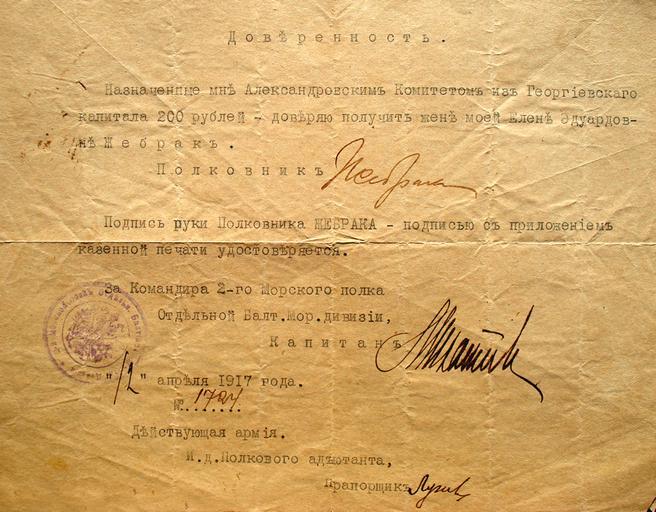 Довѣренность.
Назначенные мнѣ Александровскимъ Комитетомъ изъ Георгіевскаго
капитала 200 рублей – довѣряю получить женѣ моей Еленѣ Эдуардов-
нѣ Жебракъ.
Полковникъ Жебракъ
Подпись руки Полковника ЖЕБРАКА – подписью съ приложеніемъ
казенной печати удостовѣряется.
За Командира 2-го Морского полка
Отдѣльной Балт.Мор.дивизіи,
Капитанъ
"12" апрѣля 1917 года.
№.1724
Дѣйствующая армія.
И.д.Полкового адъютанта,
Прапорщикъ